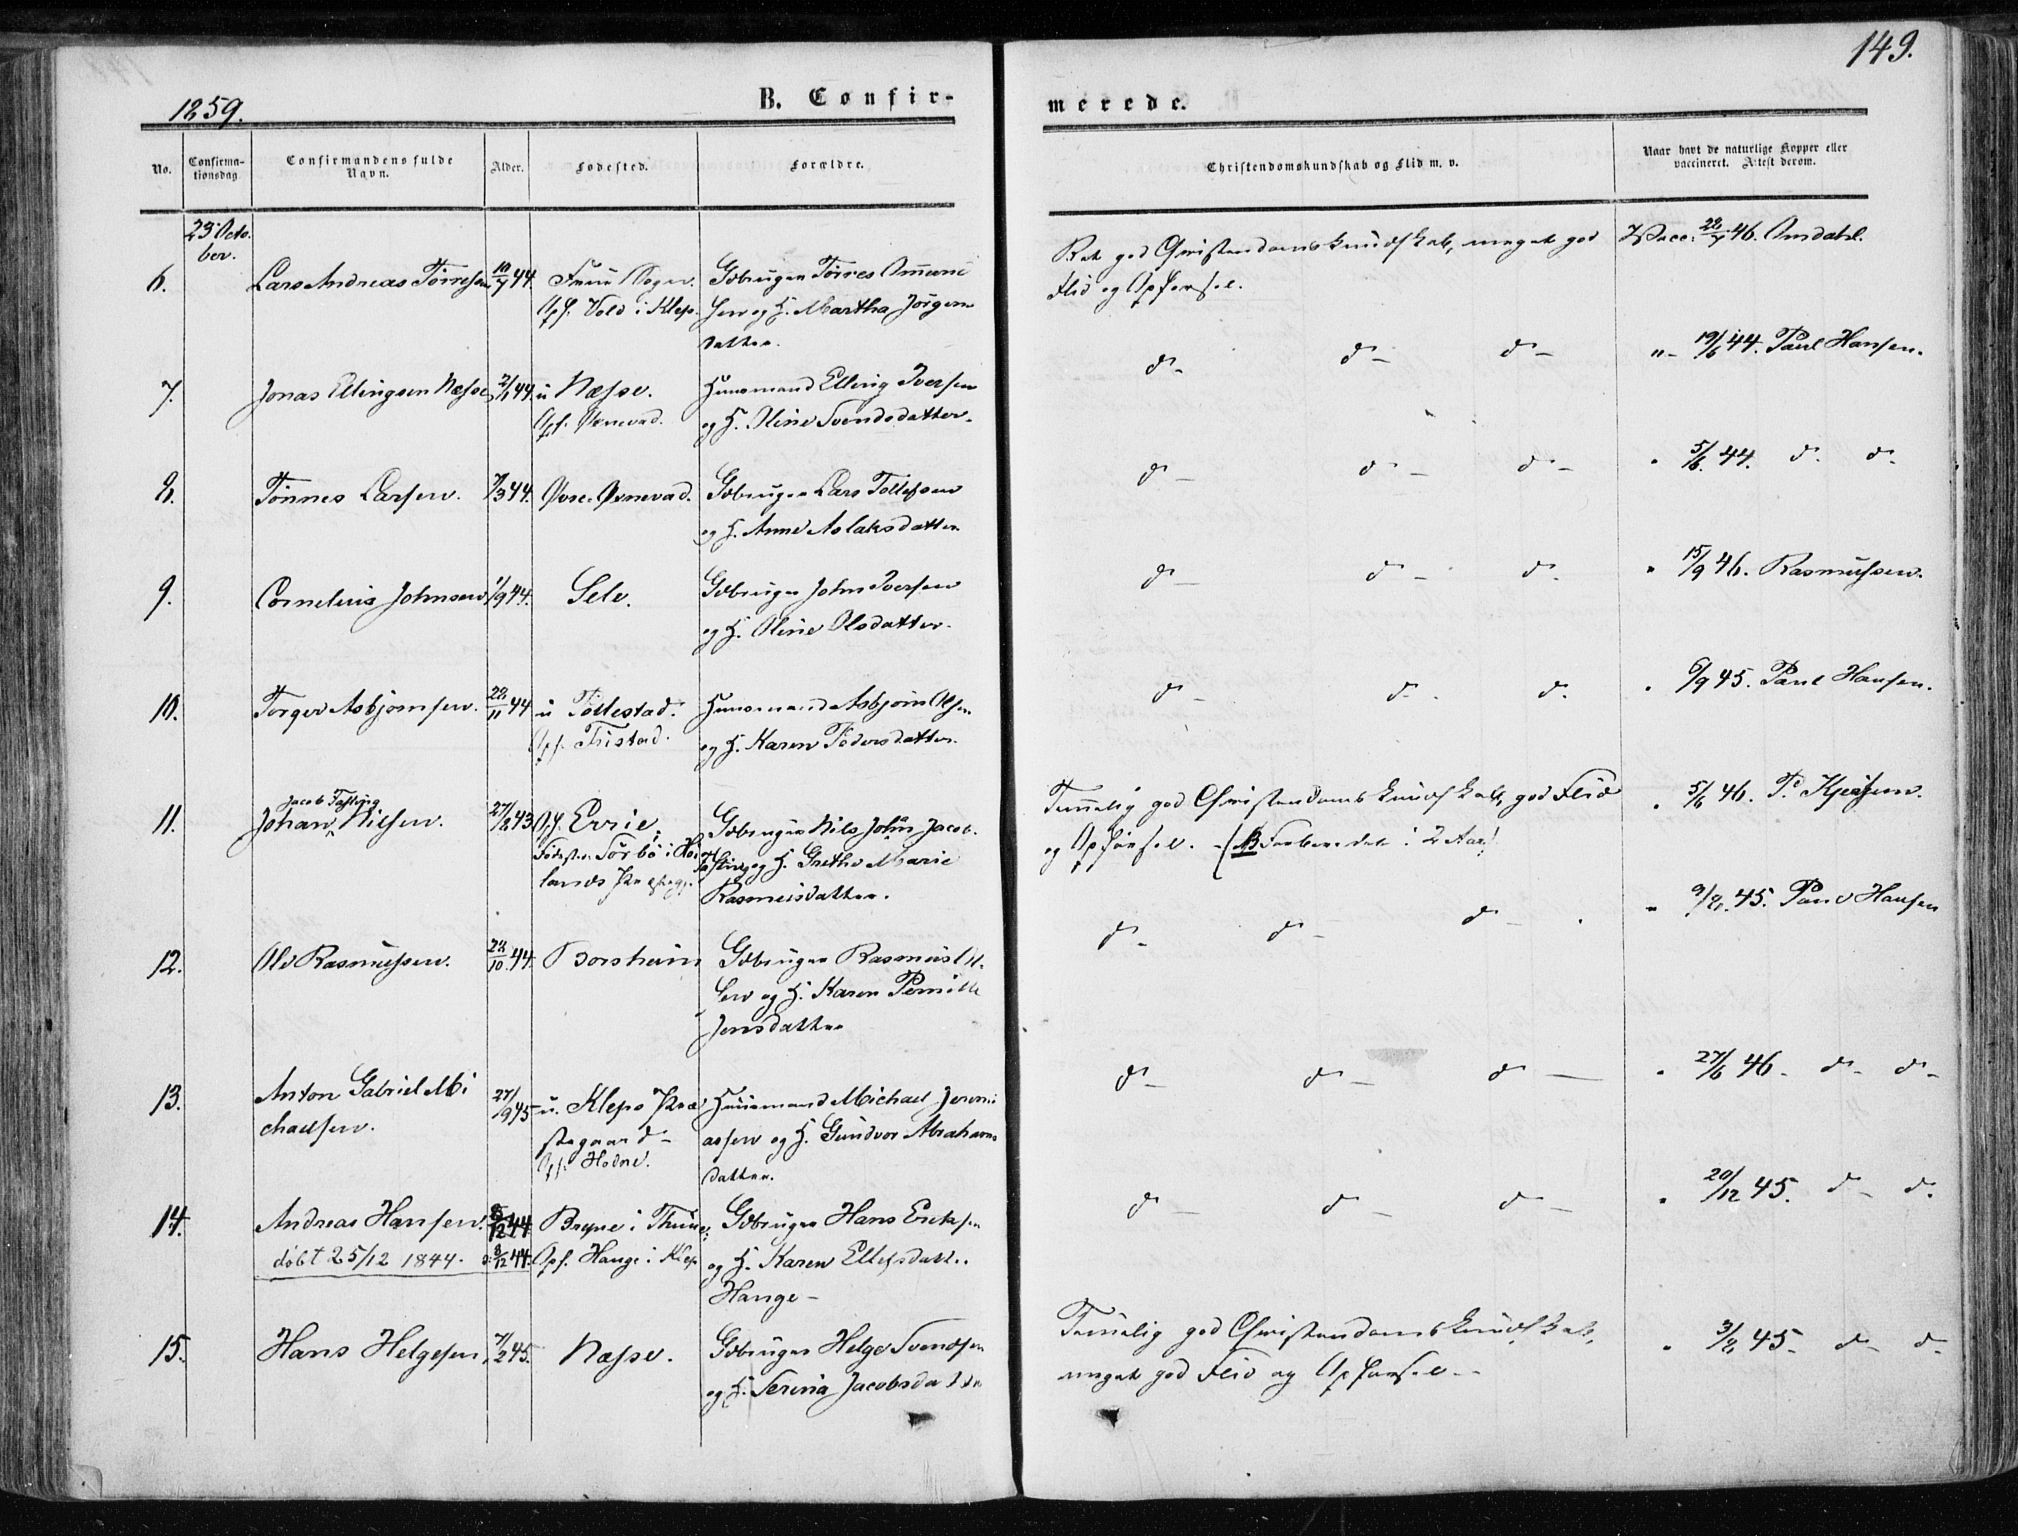 149.
1859.
B. Confir-
merede.
No.
Confirma-
tionsdag
Confirmandens fulde
Navn.
Alder.
Fødested.
Forældre.
Christendomskundskab og Flid m. v.
Naar havt de naturlige Kopper eller
vaccineret. Attest derom.
23 Octo-
ber.
6. Lars Andreas Tørresen 10/7 44.
Opf. Vold i Klep.
Gdbruger Tørres
sen og H. Martha Jørgens
datter.
Ret god Christendomskundskab, meget god
Flid og Opførsel.
Vacc. 22/7 46. Omdahl.
7. Jonas Ellingsen Næsse 2/1 44. u Næsse.
Opf. Øxnevad.
Huusmand Elling Iversen
og H. Oline Svendsdatter.
d- d- d-
"- 19/6 44. Paul Hansen.
8. Tønnes Larsen. 7/3 44. Øvre Øxnevad.
Gdbruger Lars Tollefsen
og H. Anne Aslaksdatter
d- d- d-
" 5/6 44. d. d.
9. Cornelius Johnsen 1/9 44. Sele.
Gdbruger John Iversen
og H. Oline Olsdatter.
d- d- d.
" 15/9 46. Rasmussen.
10. Torger Asbjørnsen. 22/11 44 u Tøllestad.
Opf. Tristad.
Huusmand Asbjørn Olsen
og H. Karen Pedersdatter.
d- d- d.
" 6/9 45. Paul Hansen.
Jacob Tasting
11. Johan Nilsen. 27/8 43 Opf. Errie.
Fødested Sørbø i Høi
lands Præstegj.
Gdbruger Nils John Jacob-
Tasting og H. Grethe Marie
Rasmusdatter.
Temmelig god Christendomskundskab, god Flid
og Opførsel. - (NB Forberedet i 2 Aar!
" 5/6 46. P.
12. Ole Rasmussen. 22/10 44. Borsheim
Gdbruger Rasmus Ol-
sen og H. Karen Pernille
Jensdatter
d- d- d-
" 9/8 45. Paul Hansen
13. Anton Gabriel Mi
chaelsen. 27/9 45 u. Kleps Præ
stegaard-
Opf. Hodne.
Huusmand Michael Jeremi
assen og H. Gundvor Abrahams
datter.
d- d- d-
" 27/6 46- d- d-
14. Andreas Hansen. 8/12 44 Bryne i Thime
døbt 25/12 1844. 8/12 44. Opf. Hauge i Klep
Gdbruger Hans Eriksen
og H. Karen Ellefsdatter
Hauge-
d- d- d-
" 20/12 45. d- d.
15. Hans Helgesen, 7/2 45. Næsse.
Gdbruger Helge Svendsen
og H. Serina Jacobsdatter
Temmelig god Christendomskundskab,
meget god Flid og Opførsel.-
" 3/8 45- d- d-